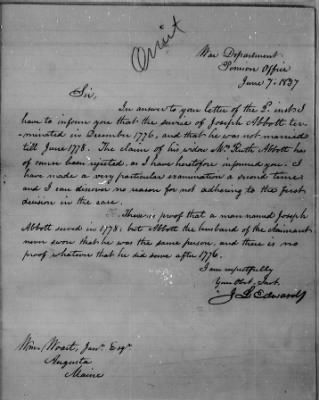 Omit
War Department
Pension Office
June 7. 1837
Sir,
In answer to your letter of the 2d inst. I
have to inform you that the service of Joseph Abbott ter-
minated in December 1776, and that he was not married
till June 1778. The claim of his widow Mrs. Ruth Abbott has
of course been rejected, as I have heretofore informed you. I
have made a very particular examination a second time,
and I can discover no reason for not adhering to the first
decision in the case.
There is proof that a man named Joseph
Abbott served in 1778, but Abbott the husband of the claimant
never swore that he was the same person, and there is no
proof whatever that he did serve after 1776.
I am respectfully
Your Obdt. Servt.
J L Edwards
Wm. Junr. Esqr.
Augusta
Maine